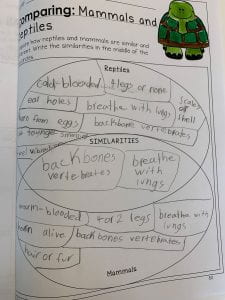 omparing: Mammals and
eptiles
how reptiles and mammals are similar and
rent. Write the similarities in the middle of the
Reptiles
cold-blooded 4 legs or none
eat holes
breathe with lungs
Scales
shell
from eggs
backbone vertebrates
SIMILARITIES
backbones
vertebrates
breathe
with
lungs
warm-blooded
4 or 2 legs
breathe
with
lungs
born alive
backbones vertebrates
hair or fur
Mammals